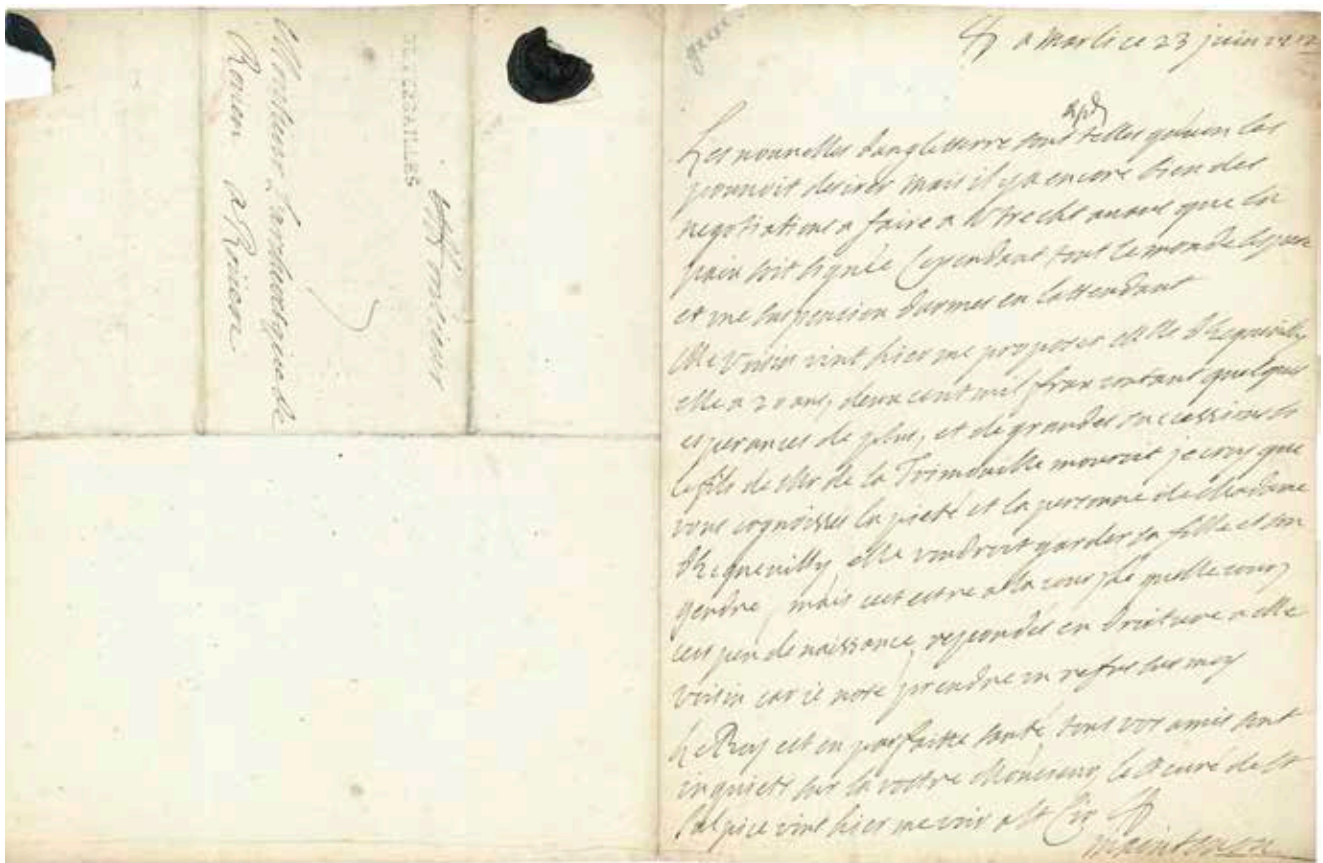 Monsieur
Monsieur Larchevesque de
Rouen a Rouen
DE VERSAILLES
a Marli ce 23 juin 1712
Les nouvelles dangleterre sont telles quon les
pouvoit desirer mais il y a encore bien des
negotiations a faire a Utrecht avant que la
paix soit signée cependant tout le monde
et une suspension darmes en lattendant
Mr Voisin vint hier me proposer Melle dhequevilly
elle a 20 ans, deux cent mil fran contant quelques
esperances de plus, et de grandes successions si
le fils de Mr de la Trimouille mouroit je croy que
vous cognoissés la pieté et la personne de Madame
dhequevilly elle voudroit garder sa fille et son
gendre, mais cest estre a la cour
cest peu de naissance, respondés en droiture a Mr
Voisin car ie nose prendre un refus sur moy
Le Roy est en parfaitte santé tous vos amis sont
inquiets sur la vostre Monsieur, le curé de St
Sulpice vint hier me voir a St Cir
Maintenon